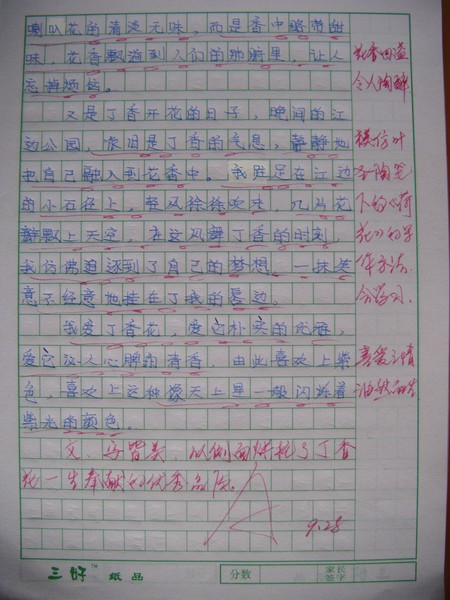 喇叭花的清淡无味，而是香中略带甜
味，花香飘溢到人们的肺腑里，让人
忘掉烦恼。
花香四溢
令人陶醉
又是丁香开花的日子，晚间的江
边公园，依旧是丁香的气息，静静地
把自己融入到花香中。我驻足在江边
的小石径上，轻风徐徐吹来，几片花
瓣飘上天空，在这风舞丁香的时刻，
我仿佛追逐到了自己的梦想，一抹笑
意不经意地挂在了我的唇边。
模仿叶
圣陶笔
下的《荷
花》的写
作方法，
会学习。
我爱丁香花，爱它朴实的花瓣，
爱它沁人心脾的清香，由此喜欢上紫
色，喜欢上这种像天上星一般闪烁着
紫光的颜色。
喜爱之情
油然而生
文、马皆美，以侧面烘托了丁香
花一生奉献的优秀品质。
9.28
三好 纸品
分数
家长
签字